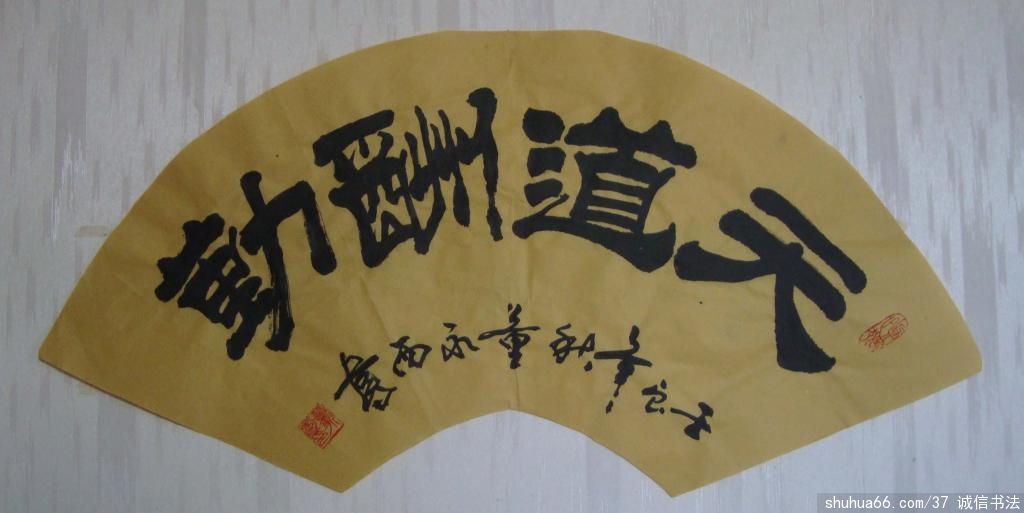 天道酬勤
壬辰年秋董永西書
shuhua66.com/37 诚信书法